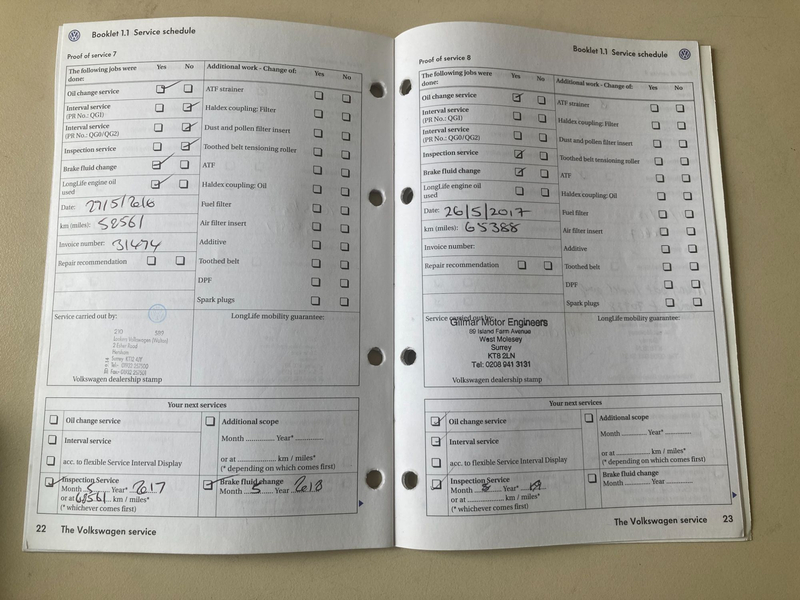 Booklet 1.1 Service schedule
Proof of service 7
The following jobs were done: Yes No
Oil change service
Interval service
(PR No.: QG1)
Interval service
(PR No.: QG0/QG2)
Inspection service
Brake fluid change
LongLife engine oil
used
Date: 27/5/2016
km (miles): 58561
Invoice number: 31474
Repair recommendation
Additional work - Change of: Yes No
ATF strainer
Haldex coupling: Filter
Dust and pollen filter insert
Toothed belt tensioning roller
ATF
Haldex coupling: Oil
Fuel filter
Air filter insert
Additive
Toothed belt
DPF
Spark plugs
Service carried out by:
Volkswagen dealership stamp
LongLife mobility guarantee:
Your next services
Oil change service
Interval service
acc. to flexible Service Interval Display
Inspection Service
Month 5 Year* 2017
or at 68561 km / miles*
(* whichever comes first)
Additional scope
Month .............. Year* ..............
or at .................. km / miles*
(* depending on which comes first)
Brake fluid change
Month 5 Year 2018
22 The Volkswagen service
Booklet 1.1 Service schedule
Proof of service 8
The following jobs were done: Yes No
Oil change service
Interval service
(PR No.: QG1)
Interval service
(PR No.: QG0/QG2)
Inspection service
Brake fluid change
LongLife engine oil
used
Date: 26/5/2017
km (miles): 65388
Invoice number:
Repair recommendation
Additional work - Change of: Yes No
ATF strainer
Haldex coupling: Filter
Dust and pollen filter insert
Toothed belt tensioning roller
ATF
Haldex coupling: Oil
Fuel filter
Air filter insert
Additive
Toothed belt
DPF
Spark plugs
Service carried out by:
Gilmar Motor Engineers
89 Island Farm Avenue
West Molesey
Surrey
KT8 2LN
Tel: 0208 941 3131
Volkswagen dealership stamp
LongLife mobility guarantee:
Your next services
Oil change service
Interval service
acc. to flexible Service Interval Display
Inspection Service
Month 5 Year*
or at .................. km / miles*
(* whichever comes first)
Additional scope
Month .............. Year* ..............
or at .................. km / miles*
(* depending on which comes first)
Brake fluid change
Month .............. Year ..............
The Volkswagen service 23